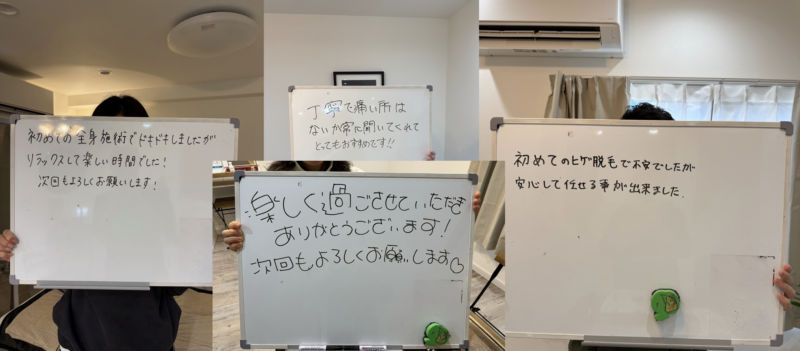 初めての全身施術でドキドキしましたが
リラックスして楽しい時間でした!
次回もよろしくお願いします!
丁寧で痛い所は
ないか常に聞いてくれて
とってもおすすめです!!
楽しく過ごさせていただき
ありがとうございます!
次回もよろしくお願いします♡
初めてのヒゲ脱毛で不安でしたが
安心して任せる事が出来ました.